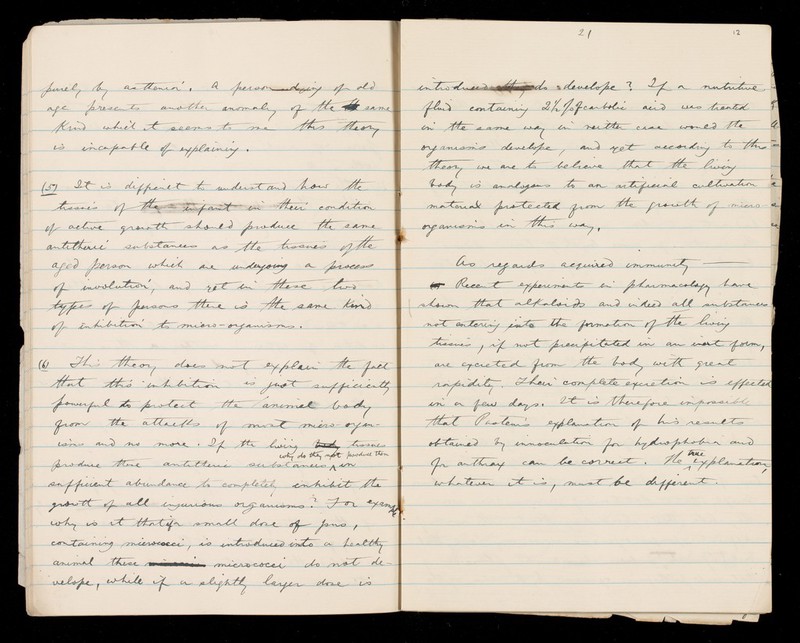 purely by asthenia. A person dying of old
age presents another anomaly of the same
kind which it seems to me this theory
is incapable of explaining.
(5) It is difficult to understand how the
tissues of the infant in their condition
of active growth should produce the same
antitheric substances as the tissues of the
aged person which are undergoing a process
of involution, and yet in these two
types of persons there is the same kind
of inhibition to micro-organisms.
(6) This theory does not explain the fact
that this inhibition is just sufficiently
powerful to protect the animal body
from the attacks of most micro-organ-
isms and no more. If the living body tissues
why do they not produce them
produce these antitheric substances in
sufficient abundance to completely inhibit the
growth of all injurious organisms? For example
why is it that if a small dose of pus,
containing micrococci, is introduced into a healthy
animal these micrococci do not de-
velope, while if a slightly larger dose is
21
13
introduced they do develope? If a nutritive
fluid containing 2% of carbolic acid was treated
in the same way in neither case would the
organisms develope, and yet according to this
theory we are to believe that the living
body is analogous to an artificial cultivation
material protected from the growth of micro-
organisms in this way.
As regards acquired immunity —
Recent experiments in pharmacology have
shown that alkaloids and indeed all substances
not entering into the formation of the living
tissues, if not precipitated in an inert form,
are excreted from the body with great
rapidity. Their complete excretion is effected
in a few days. It is therefore impossible
that Pasteur's explanation of his results
obtained by innoculation for hydrophobia and
true
for anthrax can be correct. The explanation,
whatever it is, must be different.